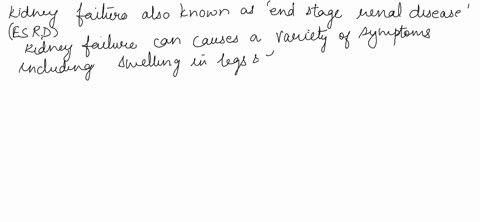 kidney failure also known as 'end stage renal disease'
(ESRD)
kidney failure can causes a variety of symptoms
including swelling in legs